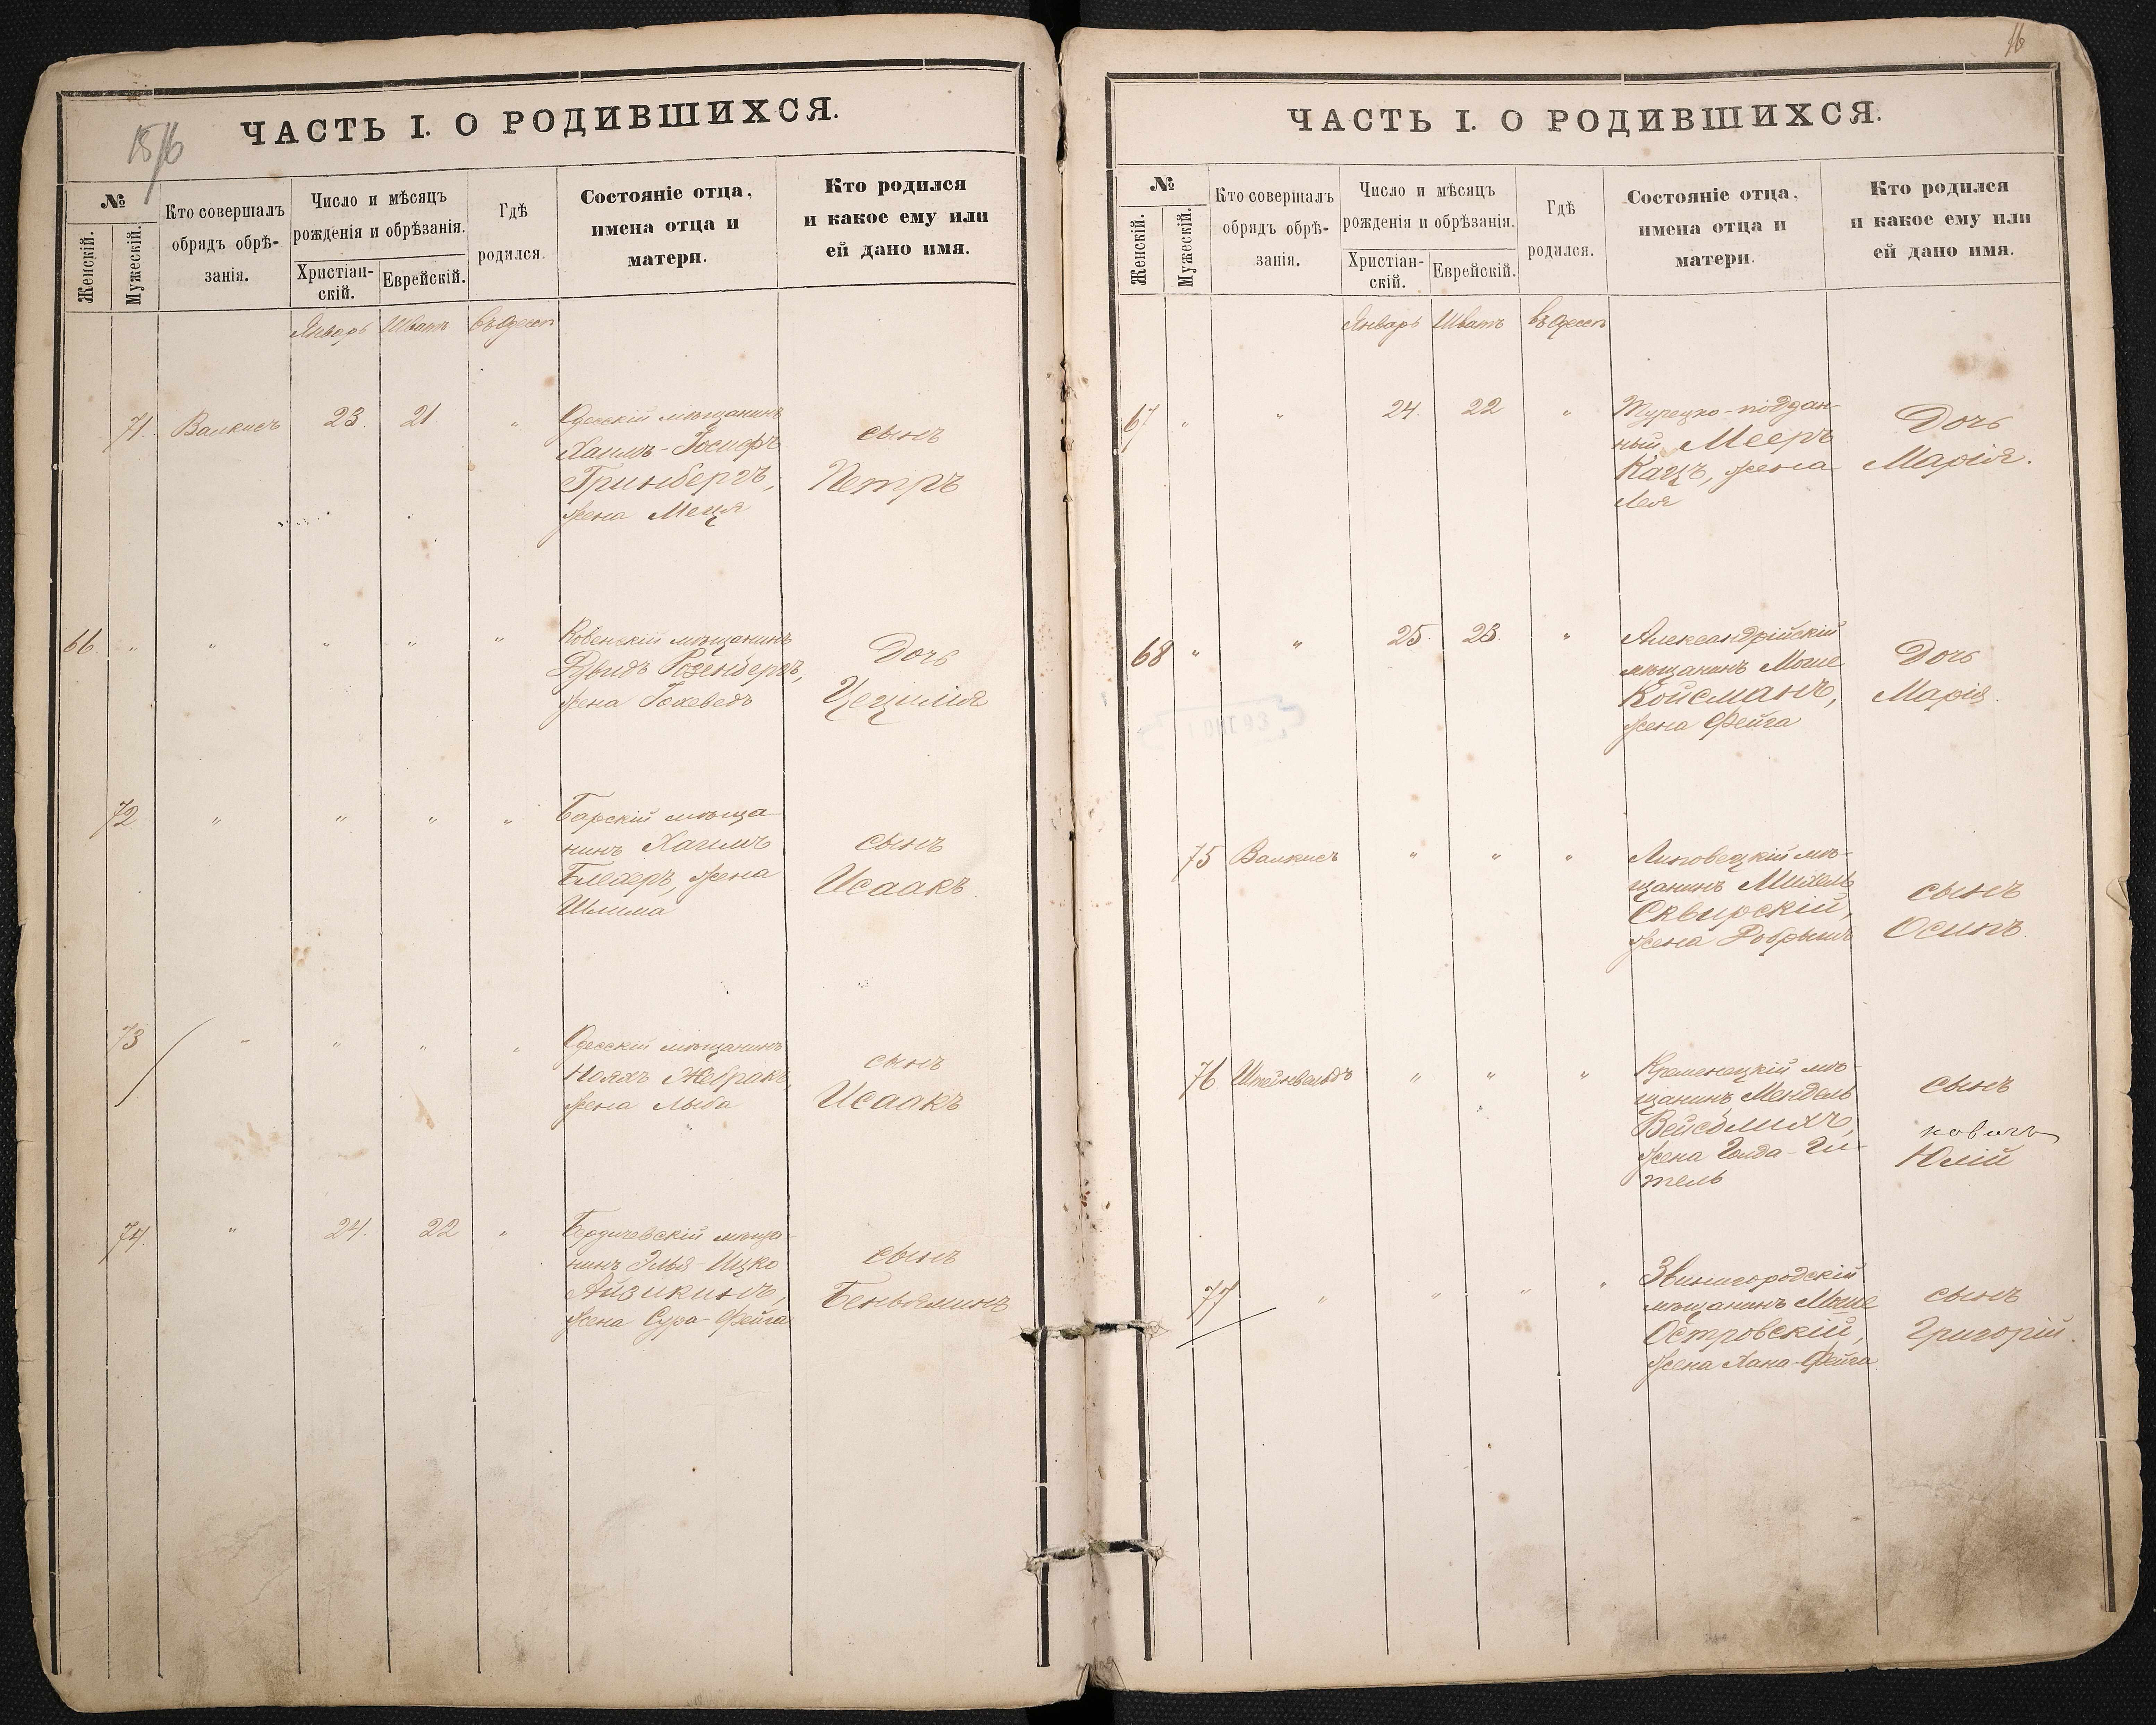 18/16
ЧАСТЬ I. О РОДИВШИХСЯ.
№
Женскій.
Мужескій.
Кто совершалъ
обрядъ обрѣ-
занія.
Число и мѣсяцъ
рожденія и обрѣзанія.
Христіан-
скій.
Еврейскій.
Гдѣ
родился.
Состояніе отца,
имена отца и
матери.
Кто родился
и какое ему или
ей дано имя.
Январь Шватъ въ Одессѣ
71. Валкисъ 23. 21 „
Одесскій мѣщанинъ
Хаимъ-Іосифъ
Гринбергъ,
жена Меця
сынъ
Петръ
66. „ „ „ „ „
Ковенскій мѣщанинъ
Дувидъ Розенбергъ,
жена Іохеведъ
Дочь
Цецилія
72 „ „ „ „
Барскій мѣща-
нинъ Хаимъ
Блехеръ, жена
Шлима
сынъ
Исаакъ
73 „ „ „ „
Одесскій мѣщанинъ
Ноахъ Жебракъ,
жена Лыба
сынъ
Исаакъ
74. „ 24. 22 „
Бердичевскій мѣща-
нинъ Элья-Ицко
Айзикинъ,
жена Сура-Фейга
сынъ
Беньяминъ
16
ЧАСТЬ I. О РОДИВШИХСЯ.
№
Женскій.
Мужескій.
Кто совершалъ
обрядъ обрѣ-
занія.
Число и мѣсяцъ
рожденія и обрѣзанія.
Христіан-
скій.
Еврейскій.
Гдѣ
родился.
Состояніе отца,
имена отца и
матери.
Кто родился
и какое ему или
ей дано имя.
Январь Шватъ въ Одессѣ
67 „ „ 24. 22 „
Турецко-поддан-
ный Мееръ
Кацъ, жена
Лея
Дочь
Марія.
68 „ „ 25. 23. „
Александрійскій
мѣщанинъ Моше
Койсманъ,
жена Фейга
Дочь
Марія.
75 Валкисъ „ „ „
Липовецкій мѣ-
щанинъ Михель
Сквирскій,
жена Добрышъ
сынъ
Осипъ
76 Штейнвальдъ „ „ „
Кременецкій мѣ-
щанинъ Мендель
Вейсблихъ,
жена Голда-Ги-
тель
сынъ
Юлій
77 „ „ „ „
Звинигородскій
мѣщанинъ Моше
Островскій,
жена Хана-Фейга
сынъ
Григорій.